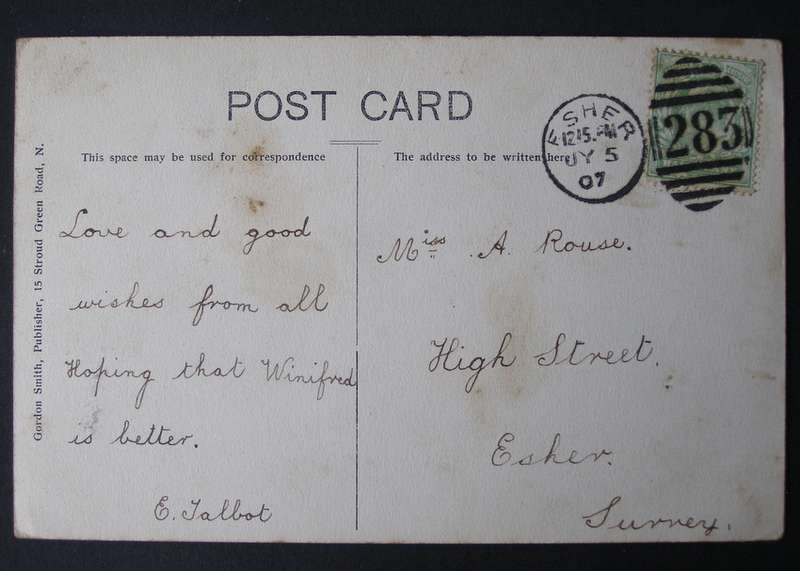 POST CARD
This space may be used for correspondence
The address to be written here
ESHER
12 15.PM
JY 5
07
283
Gordon Smith, Publisher, 15 Stroud Green Road, N.
Love and good
wishes from all
Hoping that Winifred
is better.
E. Talbot
Miss A. Rouse.
High Street.
Esher.
Surrey.